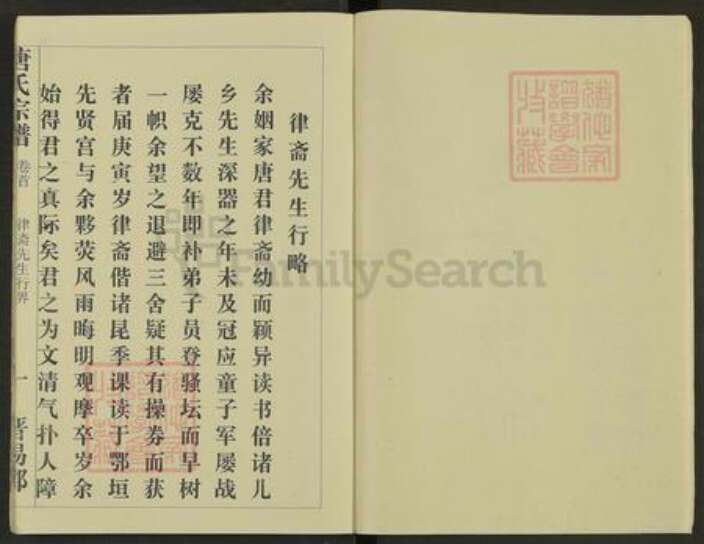 律斋先生行略
余姻家唐君律斋幼而颖异读书倍诸儿
乡先生深器之年未及冠应童子军屡战
屡克不数年即补弟子员登骚坛而早树
一帜余望之退避三舍疑其有操券而获
者届庚寅岁律斋偕诸昆季课读于鄂垣
先贤宫与余夥荧风雨晦明观摩卒岁余
始得君之真际矣君之为文清气扑人障
唐氏宗谱
卷首
律斋先生行畧
一
晋昜郡
FamilySearch